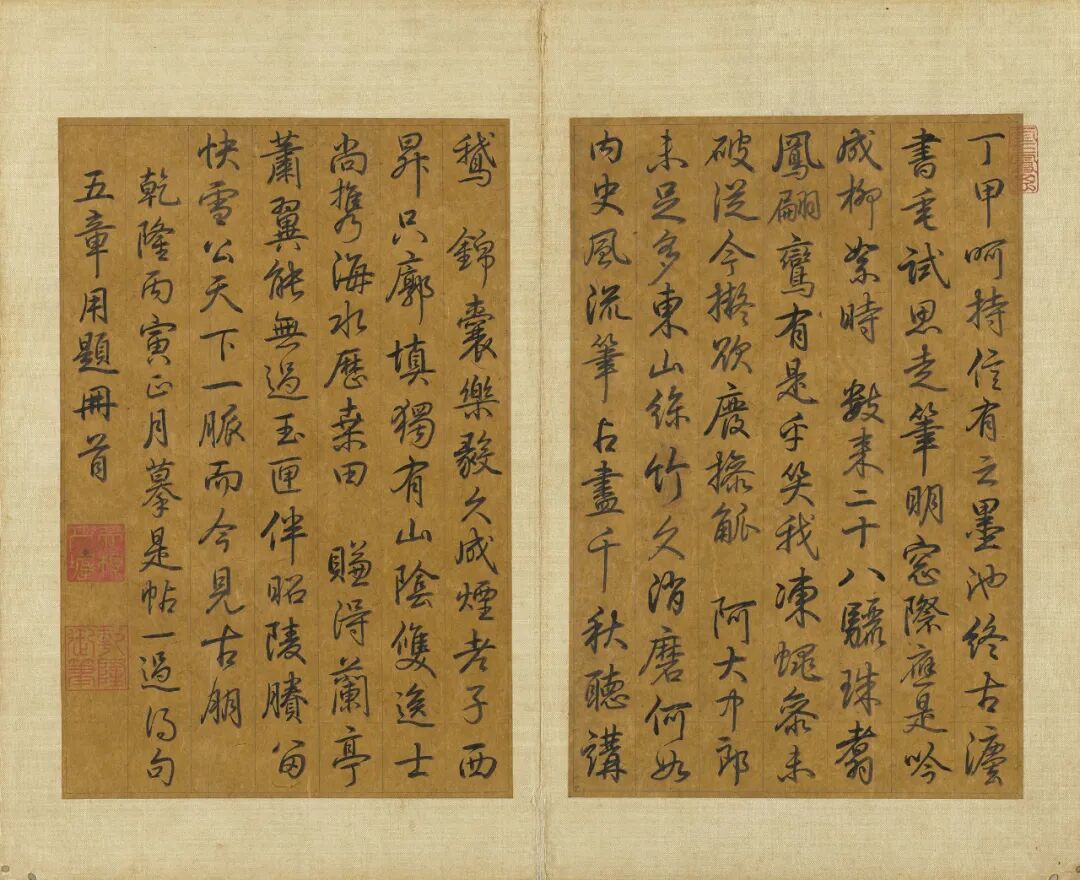 丁甲呵持信有之墨池終古
書垂試思走筆明窓際應是吟
成柳絮時 數來二十八驪珠翥
鳳翩鸞有是乎笑我凍蠅參未
破從今擬欲廢操觚 阿大中郎
未足多東山絲竹久消磨何如
内史風流筆占盡千秋聽講
鵝 錦囊樂毅久成煙老子西
昇只廓填獨有山陰雙逸士
尚攜海水歷桑田 賺得蘭亭
蕭翼能無過玉匣伴昭陵賸留
快雪公天下一脈而今見古朋
乾隆丙寅正月摹是帖一過得句
五章用題冊首
乾隆御筆